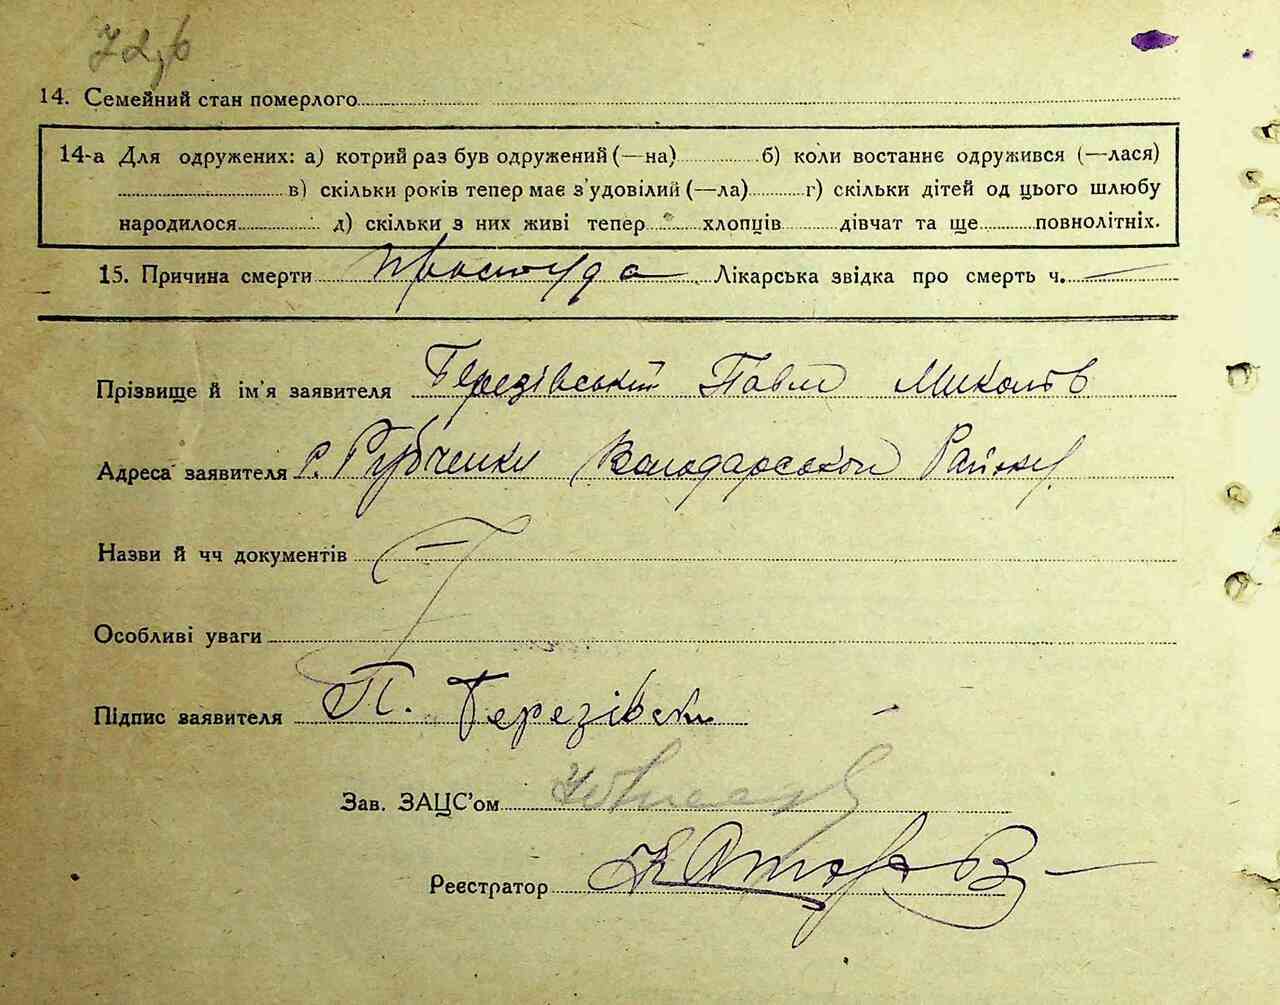 14. Семейний стан померлого
14-а Для одружених: а) котрий раз був одружений (—на) б) коли востаннє одружився (—лася)
в) скільки років тепер має з'удовілий (—ла) г) скільки дітей од цього шлюбу
народилося д) скільки з них живі тепер хлопців дівчат та ще повнолітніх.
15. Причина смерти простуда Лікарська звідка про смерть ч. —
Прізвище й ім'я заявителя Терезівський Павло Миколов
Адреса заявителя Рубченки Володарського Району
Назви й чч документів
Особливі уваги
Підпис заявителя П. Терезівськи
Зав. ЗАЦС'ом
Реєстратор